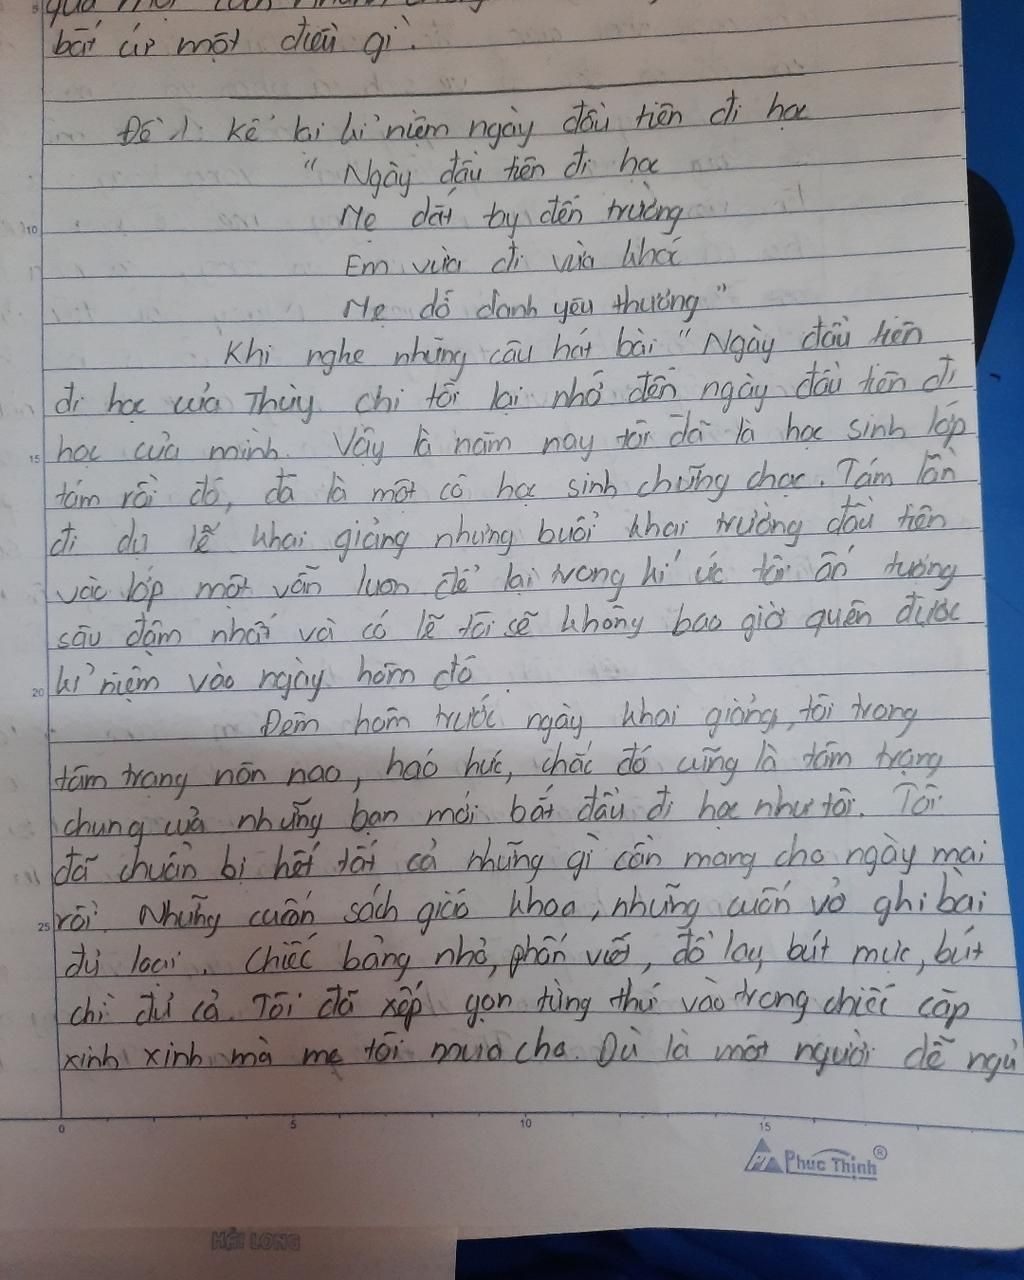 bất úp một điều gì.
Đề 1: Kể lại kỉ niệm ngày đầu tiên đi học
"Ngày đầu tiên đi học
Mẹ dắt tay đến trường
Em vừa đi vừa khóc
Mẹ dỗ dành yêu thương"
Khi nghe những câu hát bài "Ngày đầu tiên
đi học của Thùy Chi tôi lại nhớ đến ngày đầu tiên đi
học của mình. Vậy là năm nay tôi đã là học sinh lớp
tám rồi đó, đã là một cô học sinh chững chạc. Tám lần
đi dự lễ khai giảng nhưng buổi khai trường đầu tiên
vào lớp một vẫn luôn để lại trong kí ức tôi ấn tượng
sâu đậm nhất và có lẽ tôi sẽ không bao giờ quên được
kỉ niệm vào ngày hôm đó.
Đêm hôm trước ngày khai giảng, tôi trong
tâm trạng nôn nao, háo hức, chắc đó cũng là tâm trạng
chung của những bạn mới bắt đầu đi học như tôi. Tôi
đã chuẩn bị hết tất cả những gì cần mang cho ngày mai
rồi. Những cuốn sách giáo khoa, những cuốn vở ghi bài
đủ loại. Chiếc bảng nhỏ, phấn viết, đồ lau, bút mực, bút
chì đủ cả. Tôi đã xếp gọn từng thứ vào trong chiếc cặp
xinh xinh mà mẹ tôi mua cho. Dù là một người dễ ngủ
0 5 10 15
Phuc Thinh®
HẢI LONG